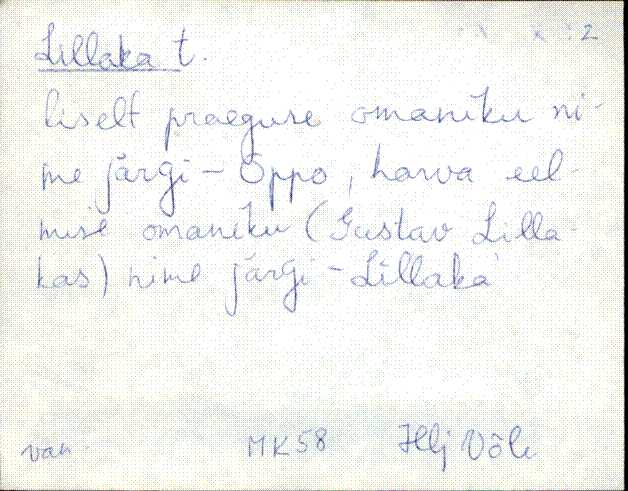 2
Lillaka t.
liselt praeguse omaniku ni-
me järgi - Oppo, harva eel-
mise omaniku (Gustav Lilla-
kas) nime järgi - Lillaka
van. MK58 Hlj Võle